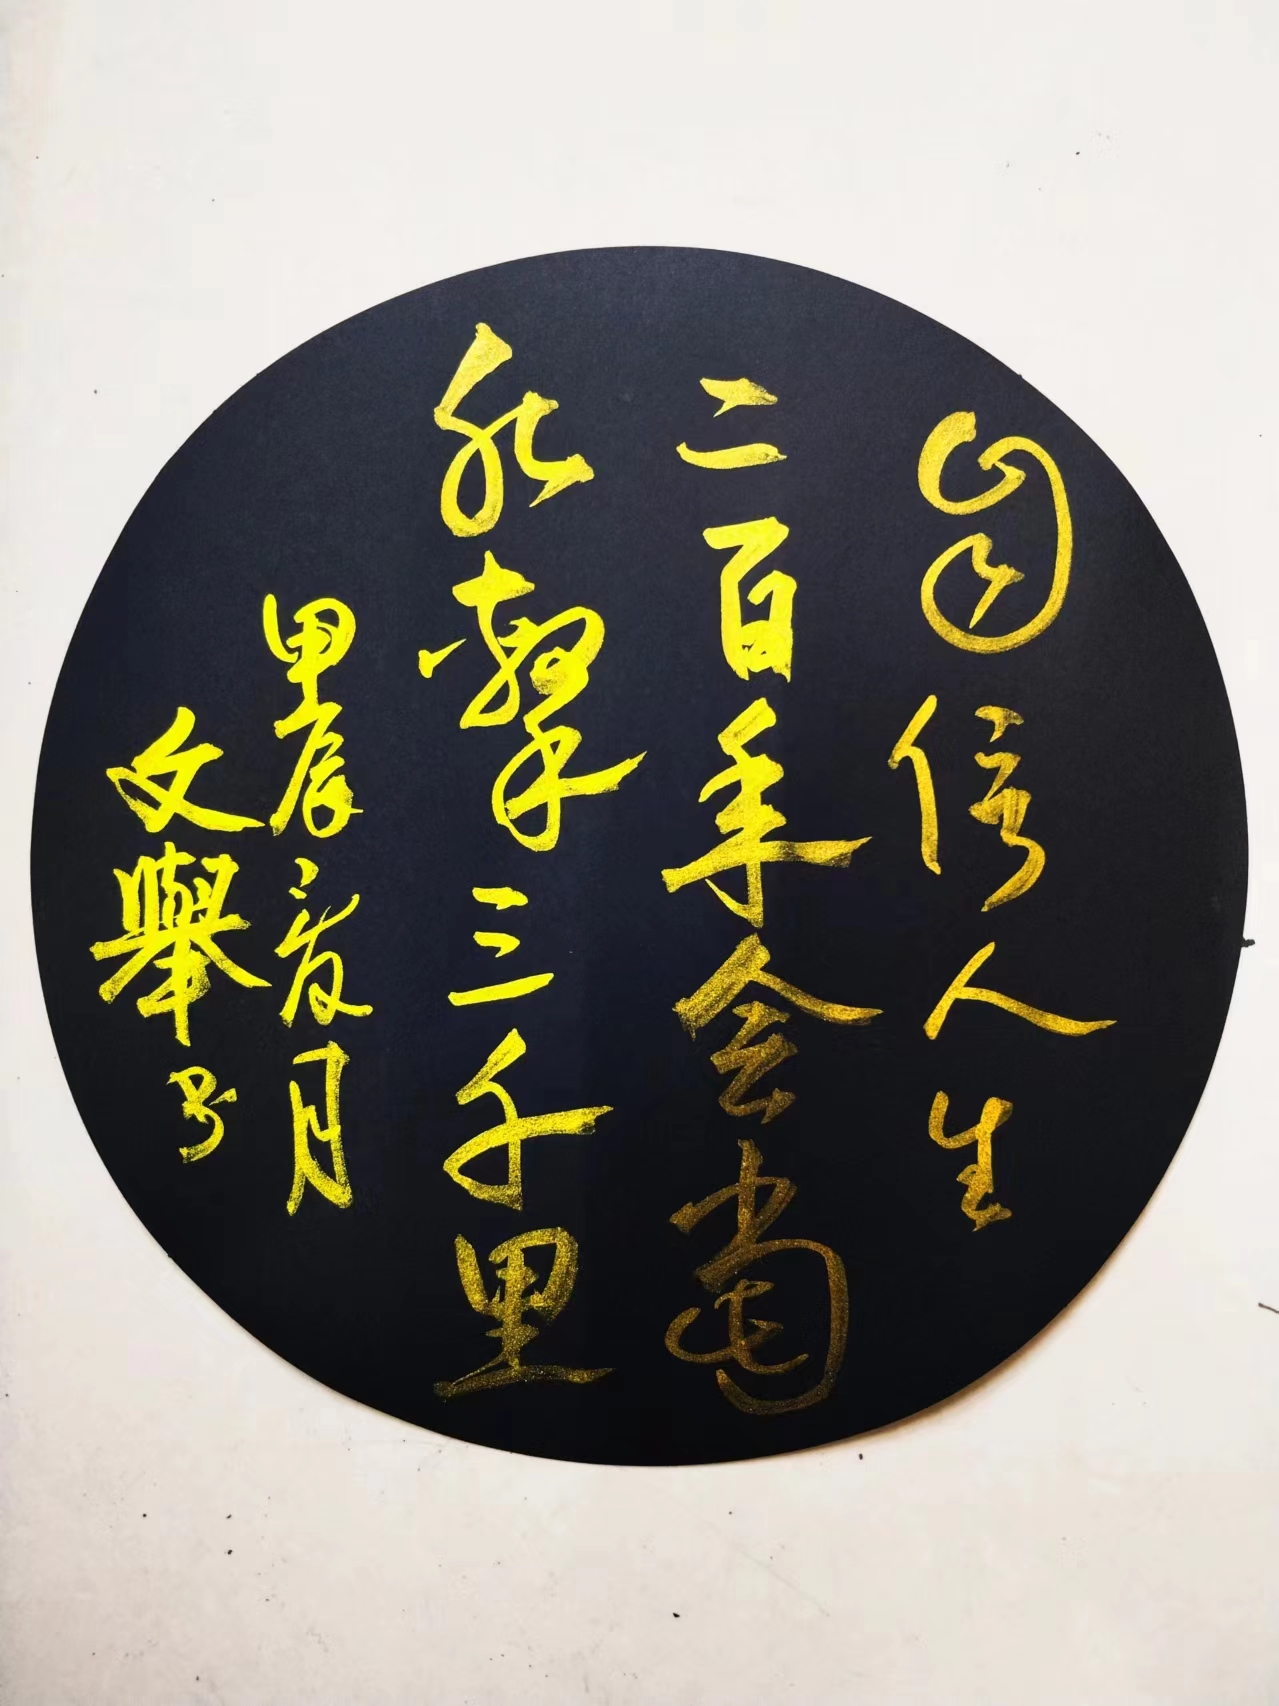 自信人生
二百年会当
水擊三千里
甲辰之夏月
文舉书